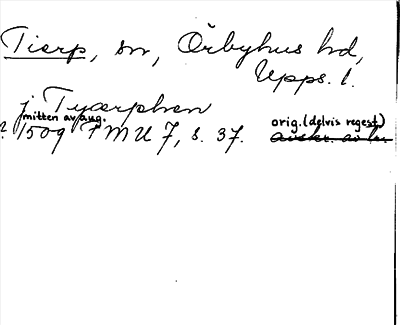 Tierp, sn, Örbyhus hd,
Upps. l.
j Tyærphen
mitten av aug.
? 1509 FMU 7, s. 37. orig. (delvis regest)